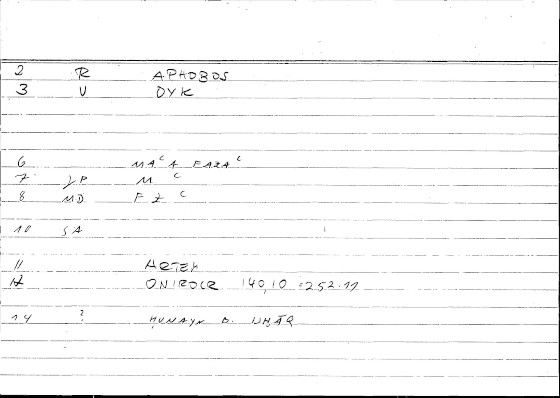 2 R APHOBOS
3 V OYK
6 MAᶜA FAZAᶜ
7 M ᶜ
8 MD F Z ᶜ
10 SA
11 ARTEM
12 ONIROCR 140,10 = 252.11
14 ? ḤUNAYN B. ISḤĀQ